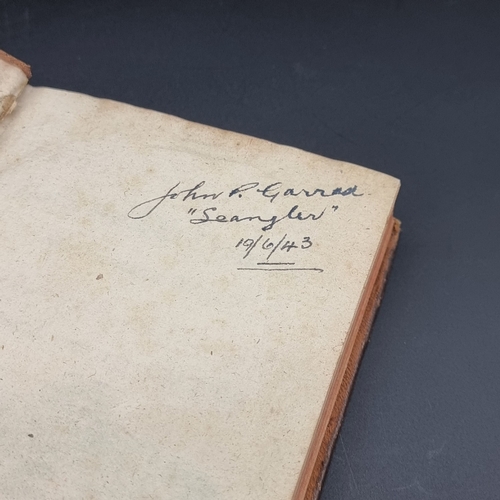 John P. Garrad
"Seangler"
19/6/43